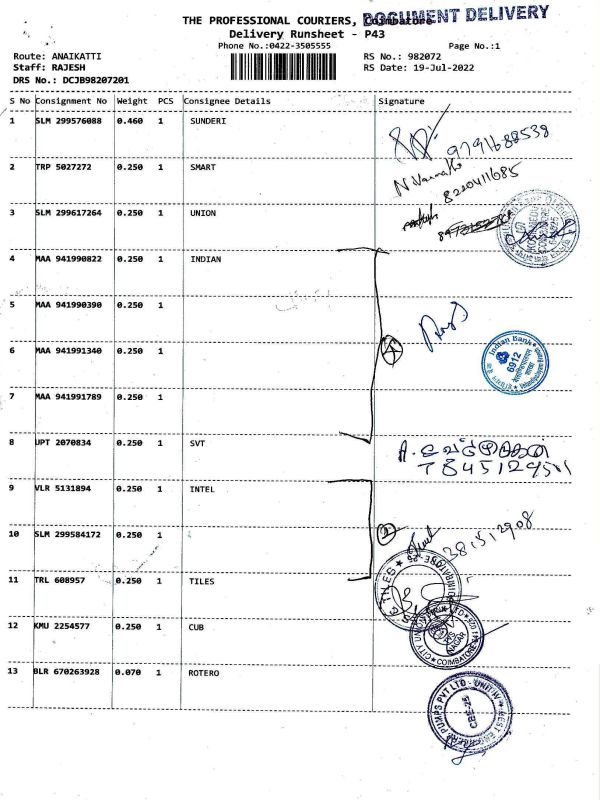 THE PROFESSIONAL COURIERS, Coimbatore
DOCUMENT DELIVERY
Delivery Runsheet - P43
Phone No.:0422-3505555 Page No.:1
Route: ANAIKATTI RS No.: 982072
Staff: RAJESH RS Date: 19-Jul-2022
DRS No.: DCJB98207201
S No Consignment No Weight PCS Consignee Details Signature
1 SLM 299576088 0.460 1 SUNDERI
9791688538
2 TRP 5027272 0.250 1 SMART
8220411685
3 SLM 299617264 0.250 1 UNION
4 MAA 941990822 0.250 1 INDIAN
5 MAA 941990390 0.250 1
6 MAA 941991340 0.250 1
4
Indian Bank
6912
7 MAA 941991789 0.250 1
8 UPT 2070834 0.250 1 SVT
9 VLR 5131894 0.250 1 INTEL
10 SLM 299584172 0.250 1
2
11 TRL 608957 0.250 1 TILES
12 KMU 2254577 0.250 1 CUB
CITY UNION
COIMBATORE
13 BLR 670263928 0.070 1 ROTERO
PUMPS PVT LTD - UNIT IV
CBE-25